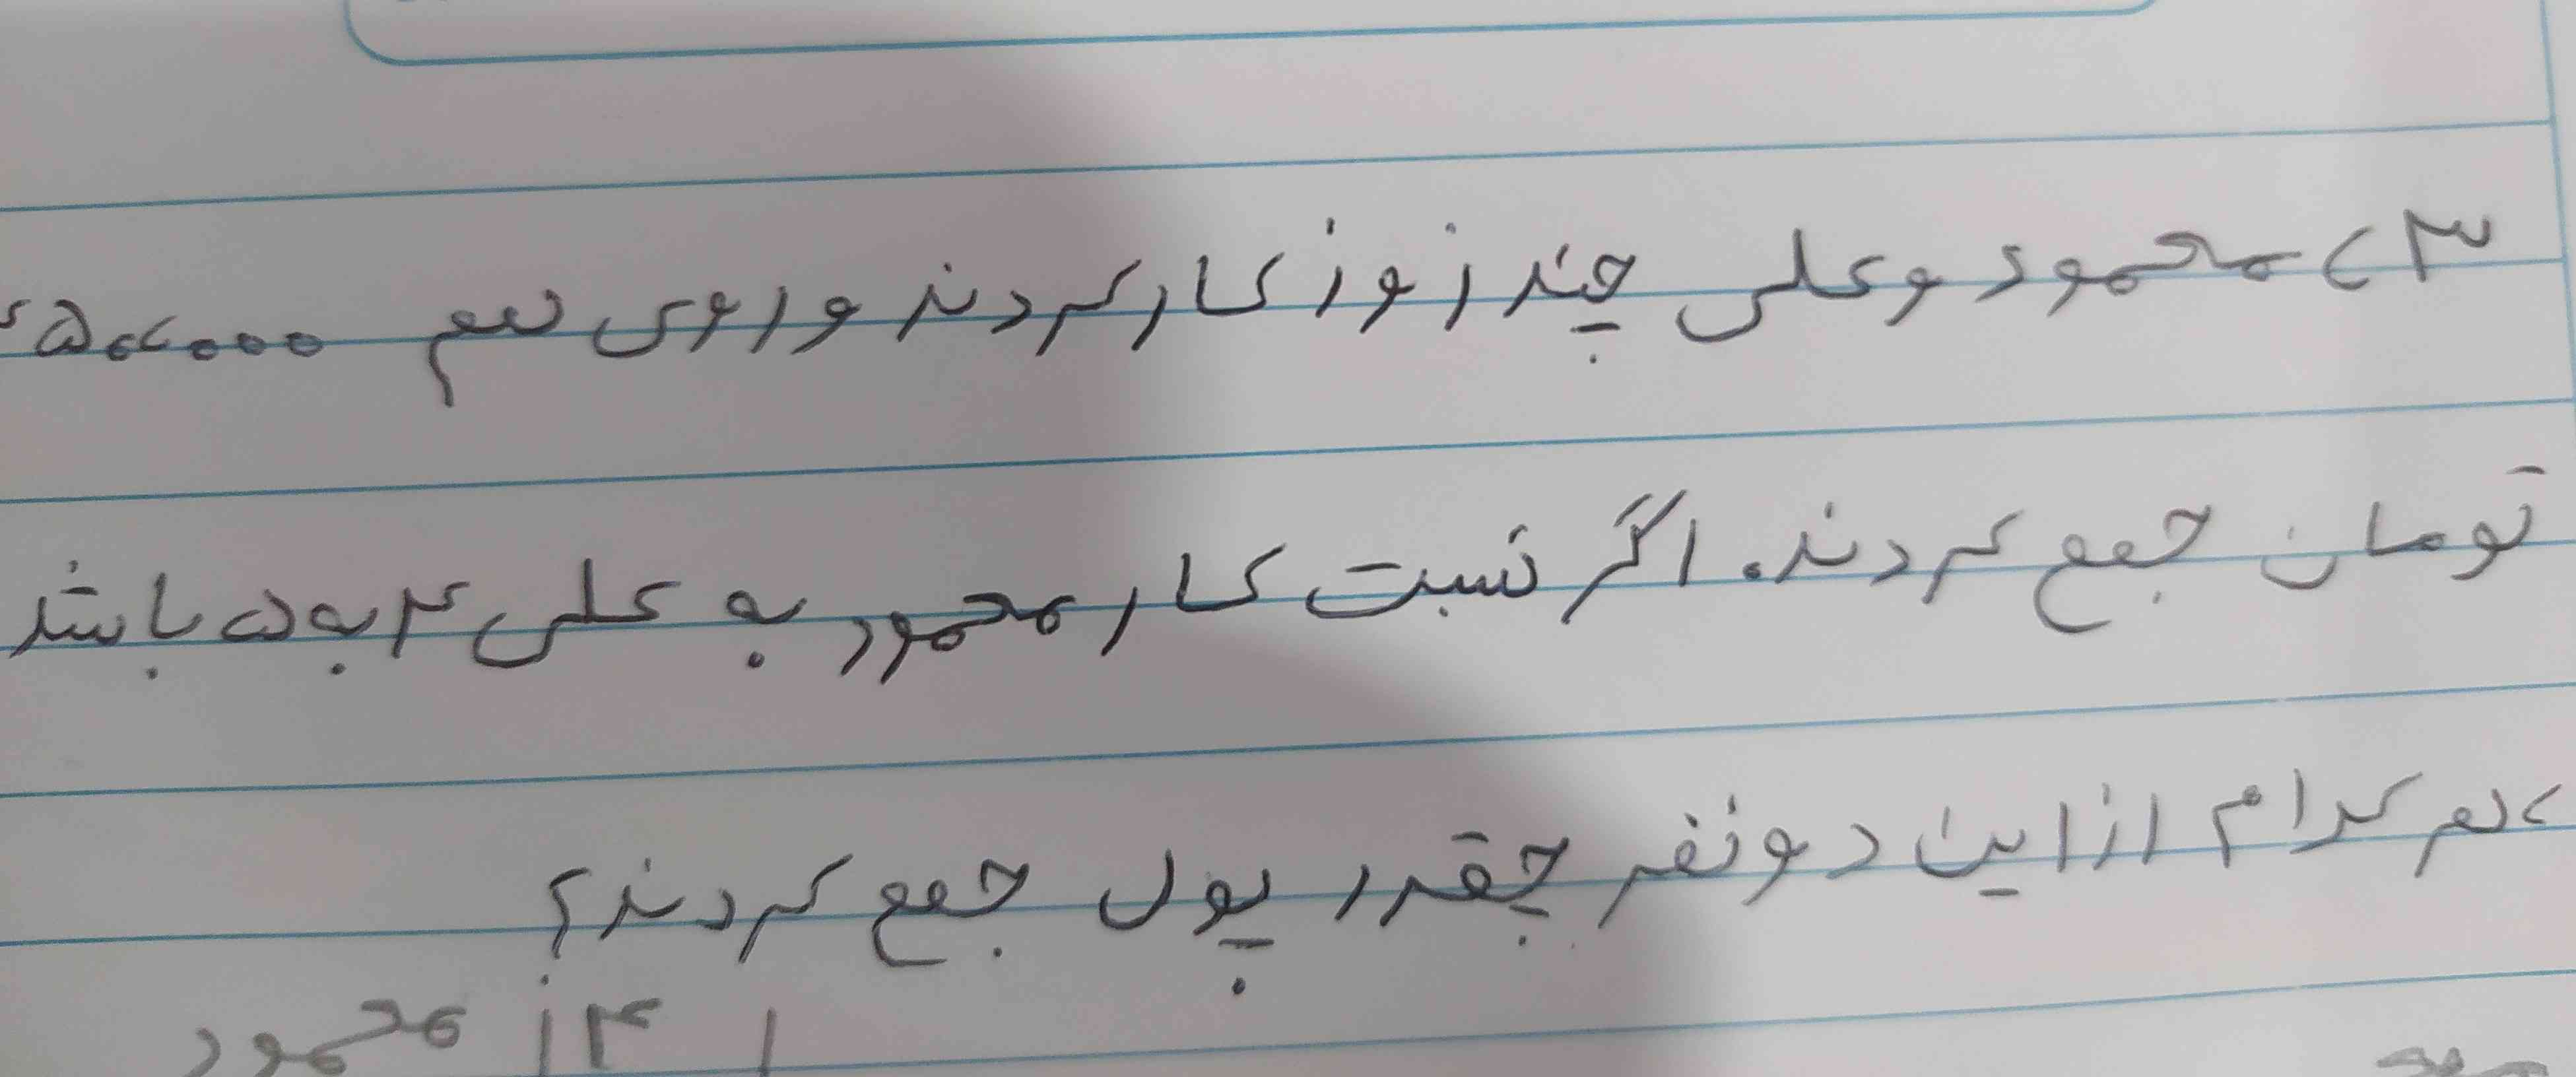 ۳) محمود و علی چند روز کار کردند و روی هم ۴۵۰,۰۰۰
تومان جمع کردند. اگر نسبت کار محمود به علی ۴ به ۵ باشد
، هر کدام از این دو نفر چقدر پول جمع کردند؟
۴ محمود